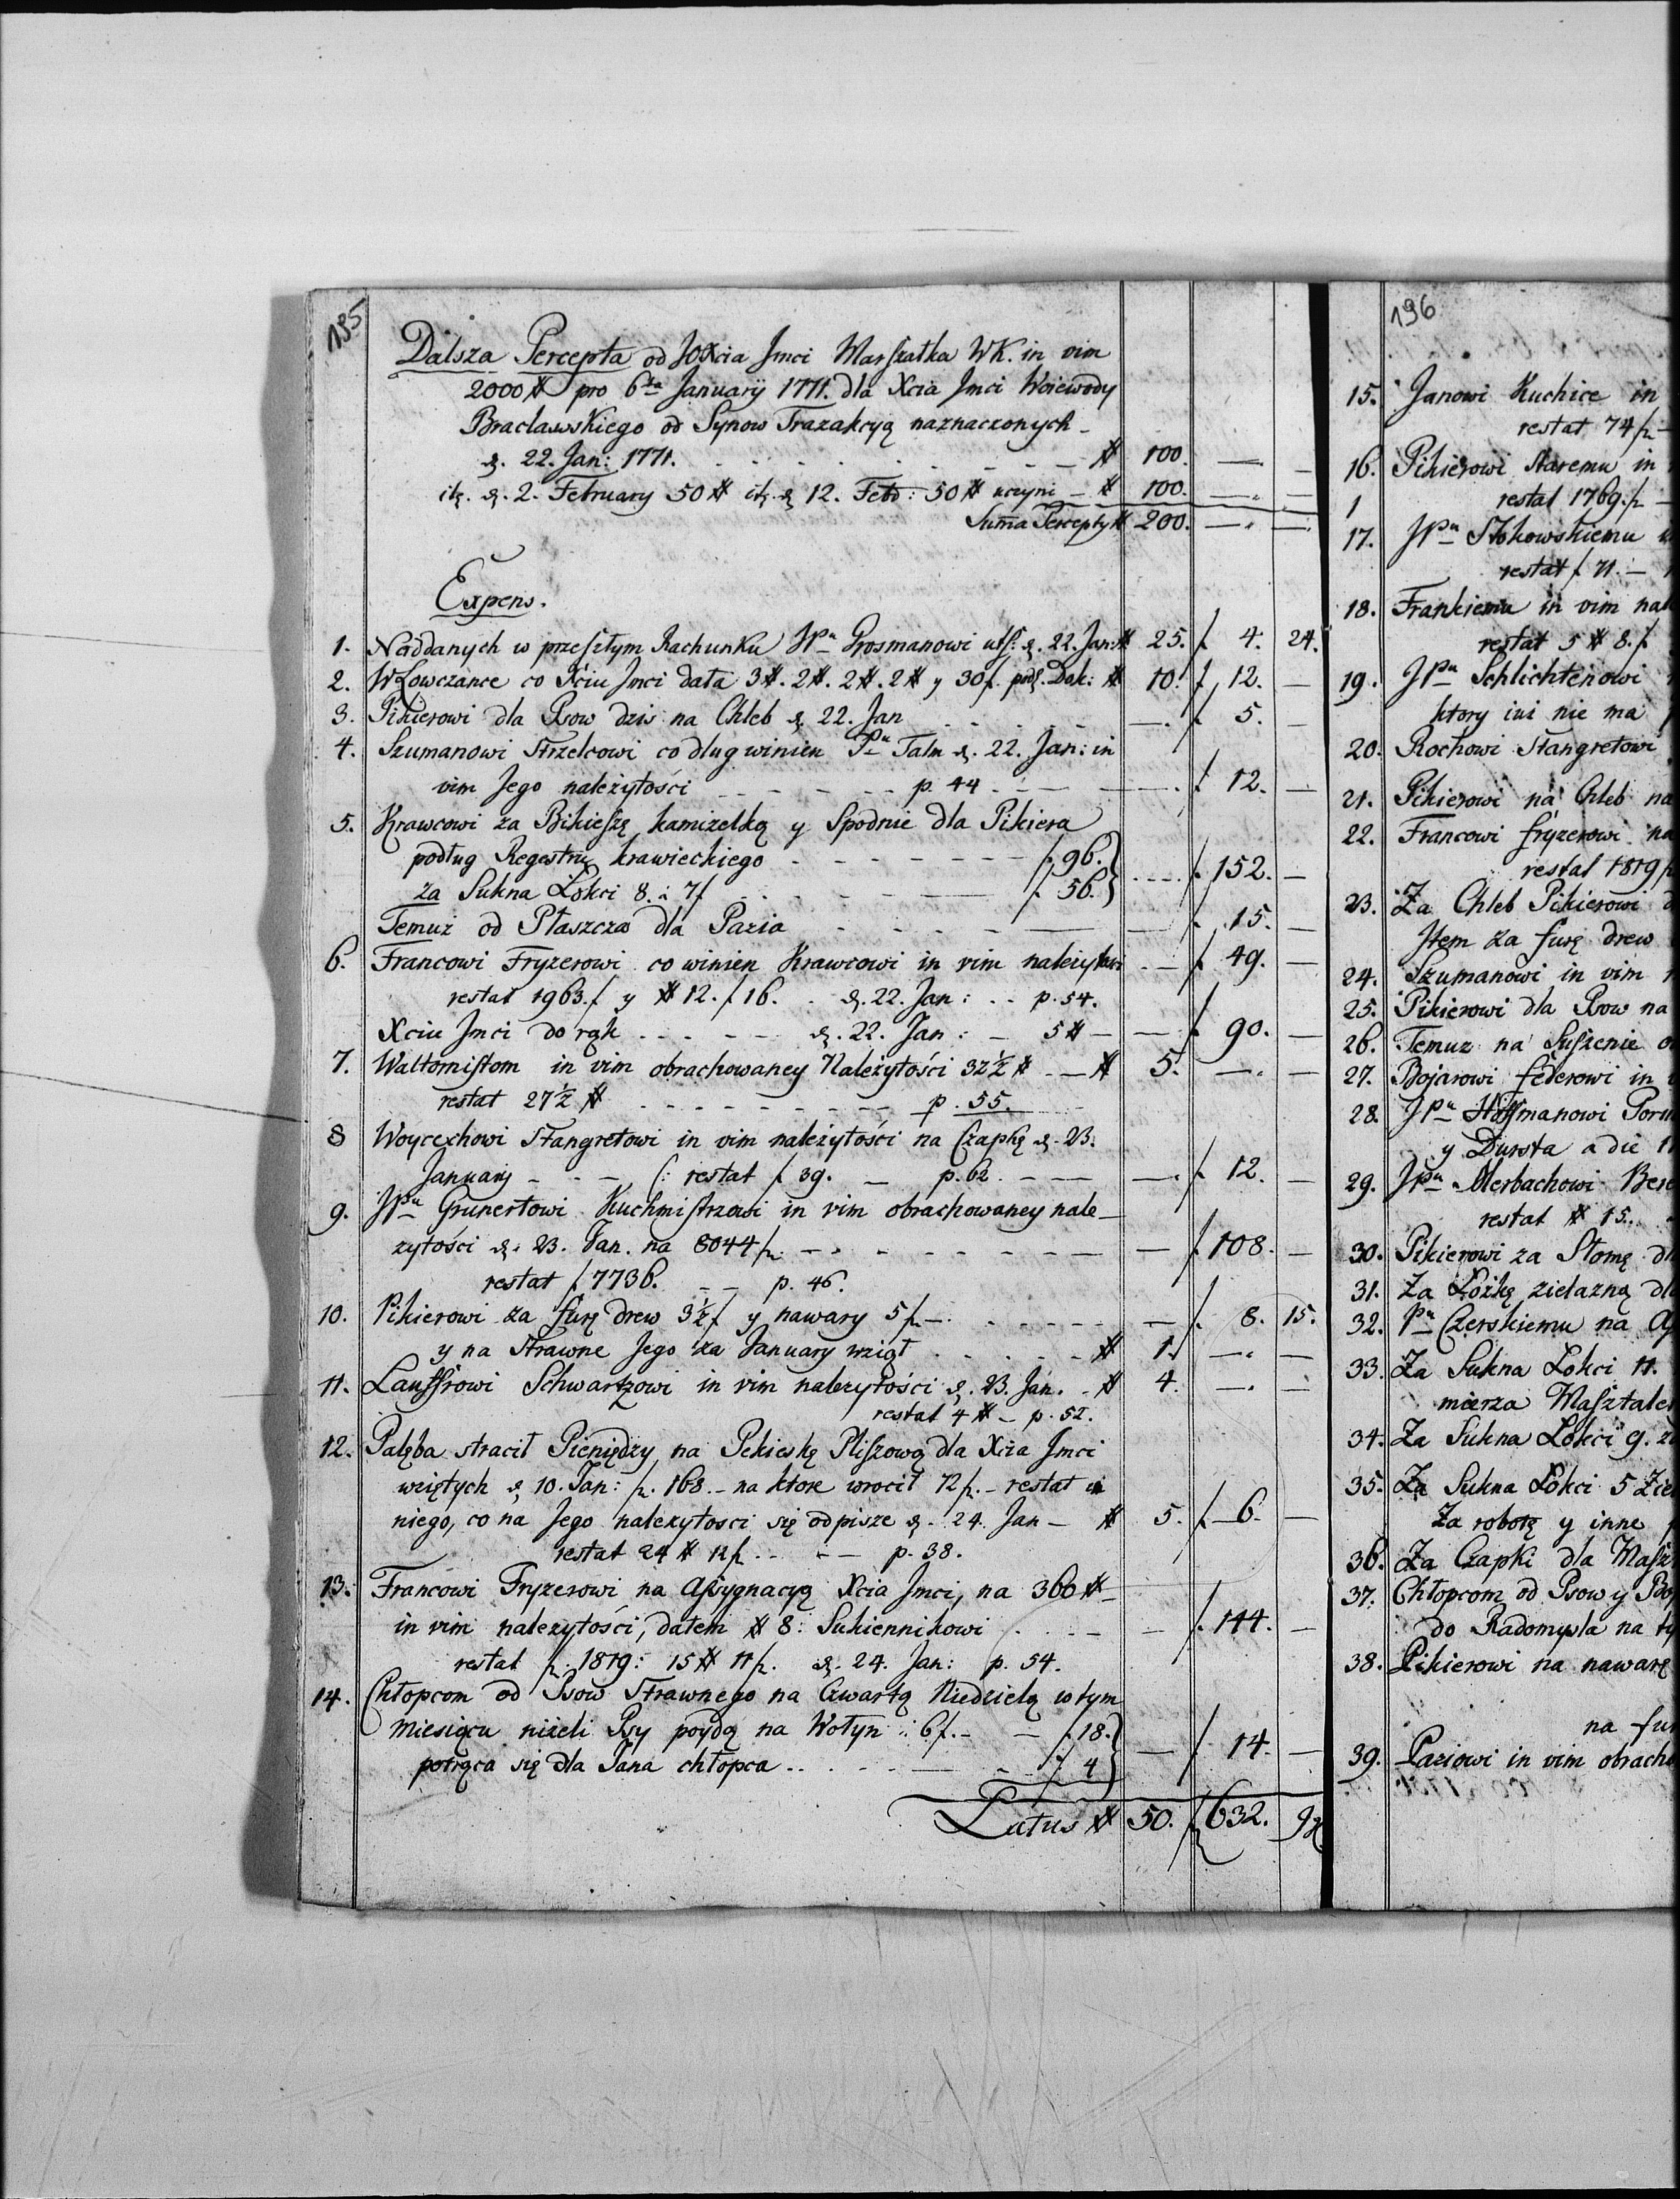 195
Dalsza Percepta od JOXcia Jmci Marszałka WK. in vim
2000 # pro 6ta January 1771. dla Xcia Jmci Woiewody
Bracławskiego od Synow Trazakcyą naznaczonych
d. 22. Jan: 1771. # 100. — —
itę. d. 2. February 50 # itę. d. 12. Febr: 50 # uczyni — # 100. — —
Suma Percepty # 200. — —
Expens.
1. Naddanych w przeszłym Rachunku JPu Grosmanowi d. 22. Jan: # 25. f 4. 24.
2. WŁowczance co Xciu Jmci dała 3#. 2#. 2#. 2# y 30f. # 10. f 12. —
3. Pikierowi dla Psow dzis na Chleb d. 22. Jan — f 5. —
4. Szumanowi Strzelcowi co dług winien Pu Talm d. 22. Jan: in
vim Jego należytości p. 44 — f 12. —
5. Krawcowi za Bikieszę kamizelkę y Spodnie dla Pikiera
podług Regestru krawieckiego f 96.
za Sukna Łokci 8. à 7f f. 56. f. 152. —
Temuż od Płaszcza dla Pazia — f. 15. —
6. Francowi Fryzerowi co winien Krawcowi in vim należytości — f 49. —
restat 1963. f y # 12. f 16. d. 22. Jan: p. 54.
Xciu Jmci do rąk d. 22. Jan: — 5 # — f. 90. —
7. Waltornistom in vim obrachowaney Należytości 32½ # — # 5. — —
restat 27½ # p. 55.
8 Woycechowi Stangretowi in vim należytości na Czapkę d. 23.
January (: restat f 39. — p. 62. — f 12. —
9. JPu Grunertowi Kuchmistrzowi in vim obrachowaney nale—
zytości d. 23. Jan. na 8044 f. — f. 108. —
restat f 7736. — p. 46.
10. Pikierowi za furę drew 3½ f y nawary 5 f. — f. 8. 15.
y na Strawne Jego za January wziął # 1. — —
11. Lauffrowi Schwartzowi in vim należytości d. 23. Jan. # 4. — —
restat 4 # — p. 52.
12. Pałęba stracił Pieniędzy na Pekieskę Pliszową dla Xcia Jmci
wziętych d. 10. Jan: f. 168. — na ktore wrocił 72 f. — restat
niego, co na Jego należytości się odpisze d. 24. Jan — # 5. f. 6. —
restat 24 # 12 f. — p. 38.
13. Francowi Fryzerowi na Assygnacyą Xcia Jmci, na 360 # —
in vim należytości, dałem # 8: Sukiennikowi — f. 144. —
restat f. 1819: 15 # 11 f. d. 24. Jan: p. 54.
14. Chłopcom od Psow Strawnego na Czwartą Niedzielą w tym
Miesiącu niżeli Psy poydą na Wołyn à 6f. — f. 18.
potrąca się dla Jana chłopca f. 4 — f. 14. —
Latus # 50. f 632. 9
196
15. Janowi Kuchice in
restat 74 f. —
16. Pikierowi Staremu in
1 restat 1769. f —
17. JPu Stokowskiemu
restat f 71. —
18. Frankiema in vim
restat 5 # 8. f
19. JPu Schlichtenowi
ktory iuż nie ma
20. Rochowi Stangretowi
21. Pikierowi na Chleb na
22. Francowi fryzerowi na
restat 1819
23. Za Chleb Pikierowi
Item za furę drew
24. Szumanowi in vim
25. Pikierowi dla Psow na
26. Temuz na Suszenie
27. Bojarowi federowi in
28. JPu Hoffmanowi
y Dursta a die
29. JPu Merbachowi
restat # 15.
30. Pikierowi za Słomę
31. Za Łożkę żielazną
32. Pu Czerskiemu na
33. Za Sukna Łokci 11.
mierza
34. Za Sukna Łokci 9.
35. Za Sukna Łokci 5
Za robotę y inne
36. Za Czapki dla
37. Chłopcom od Psow y
do Radomysla na
38. Pikierowi na nawarę
na
39. Paziowi in vim